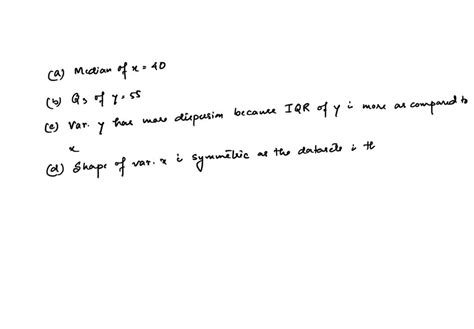 (a) Median of x = 40
(b) Q3 of y = 55
(c) Var. y has more dispersion because IQR of y is more as compared to
x
(d) Shape of var. x is symmetric as the dataset is th